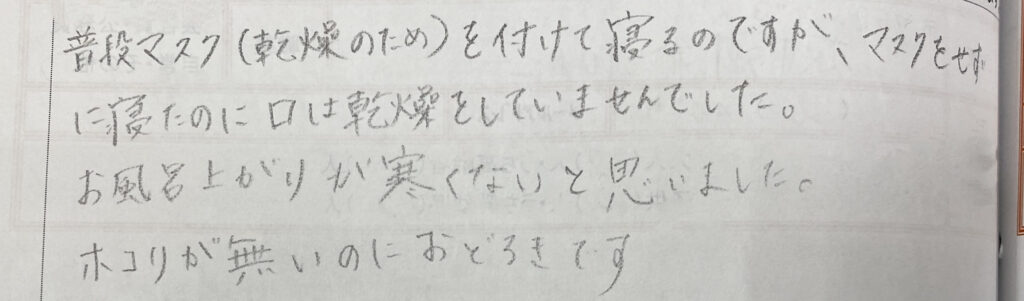 普段マスク(乾燥のため)を付けて寝るのですが、マスクをせず
に寝たのに口は乾燥をしていませんでした。
お風呂上がりが寒くないと思いました。
ホコリが無いのにおどろきです